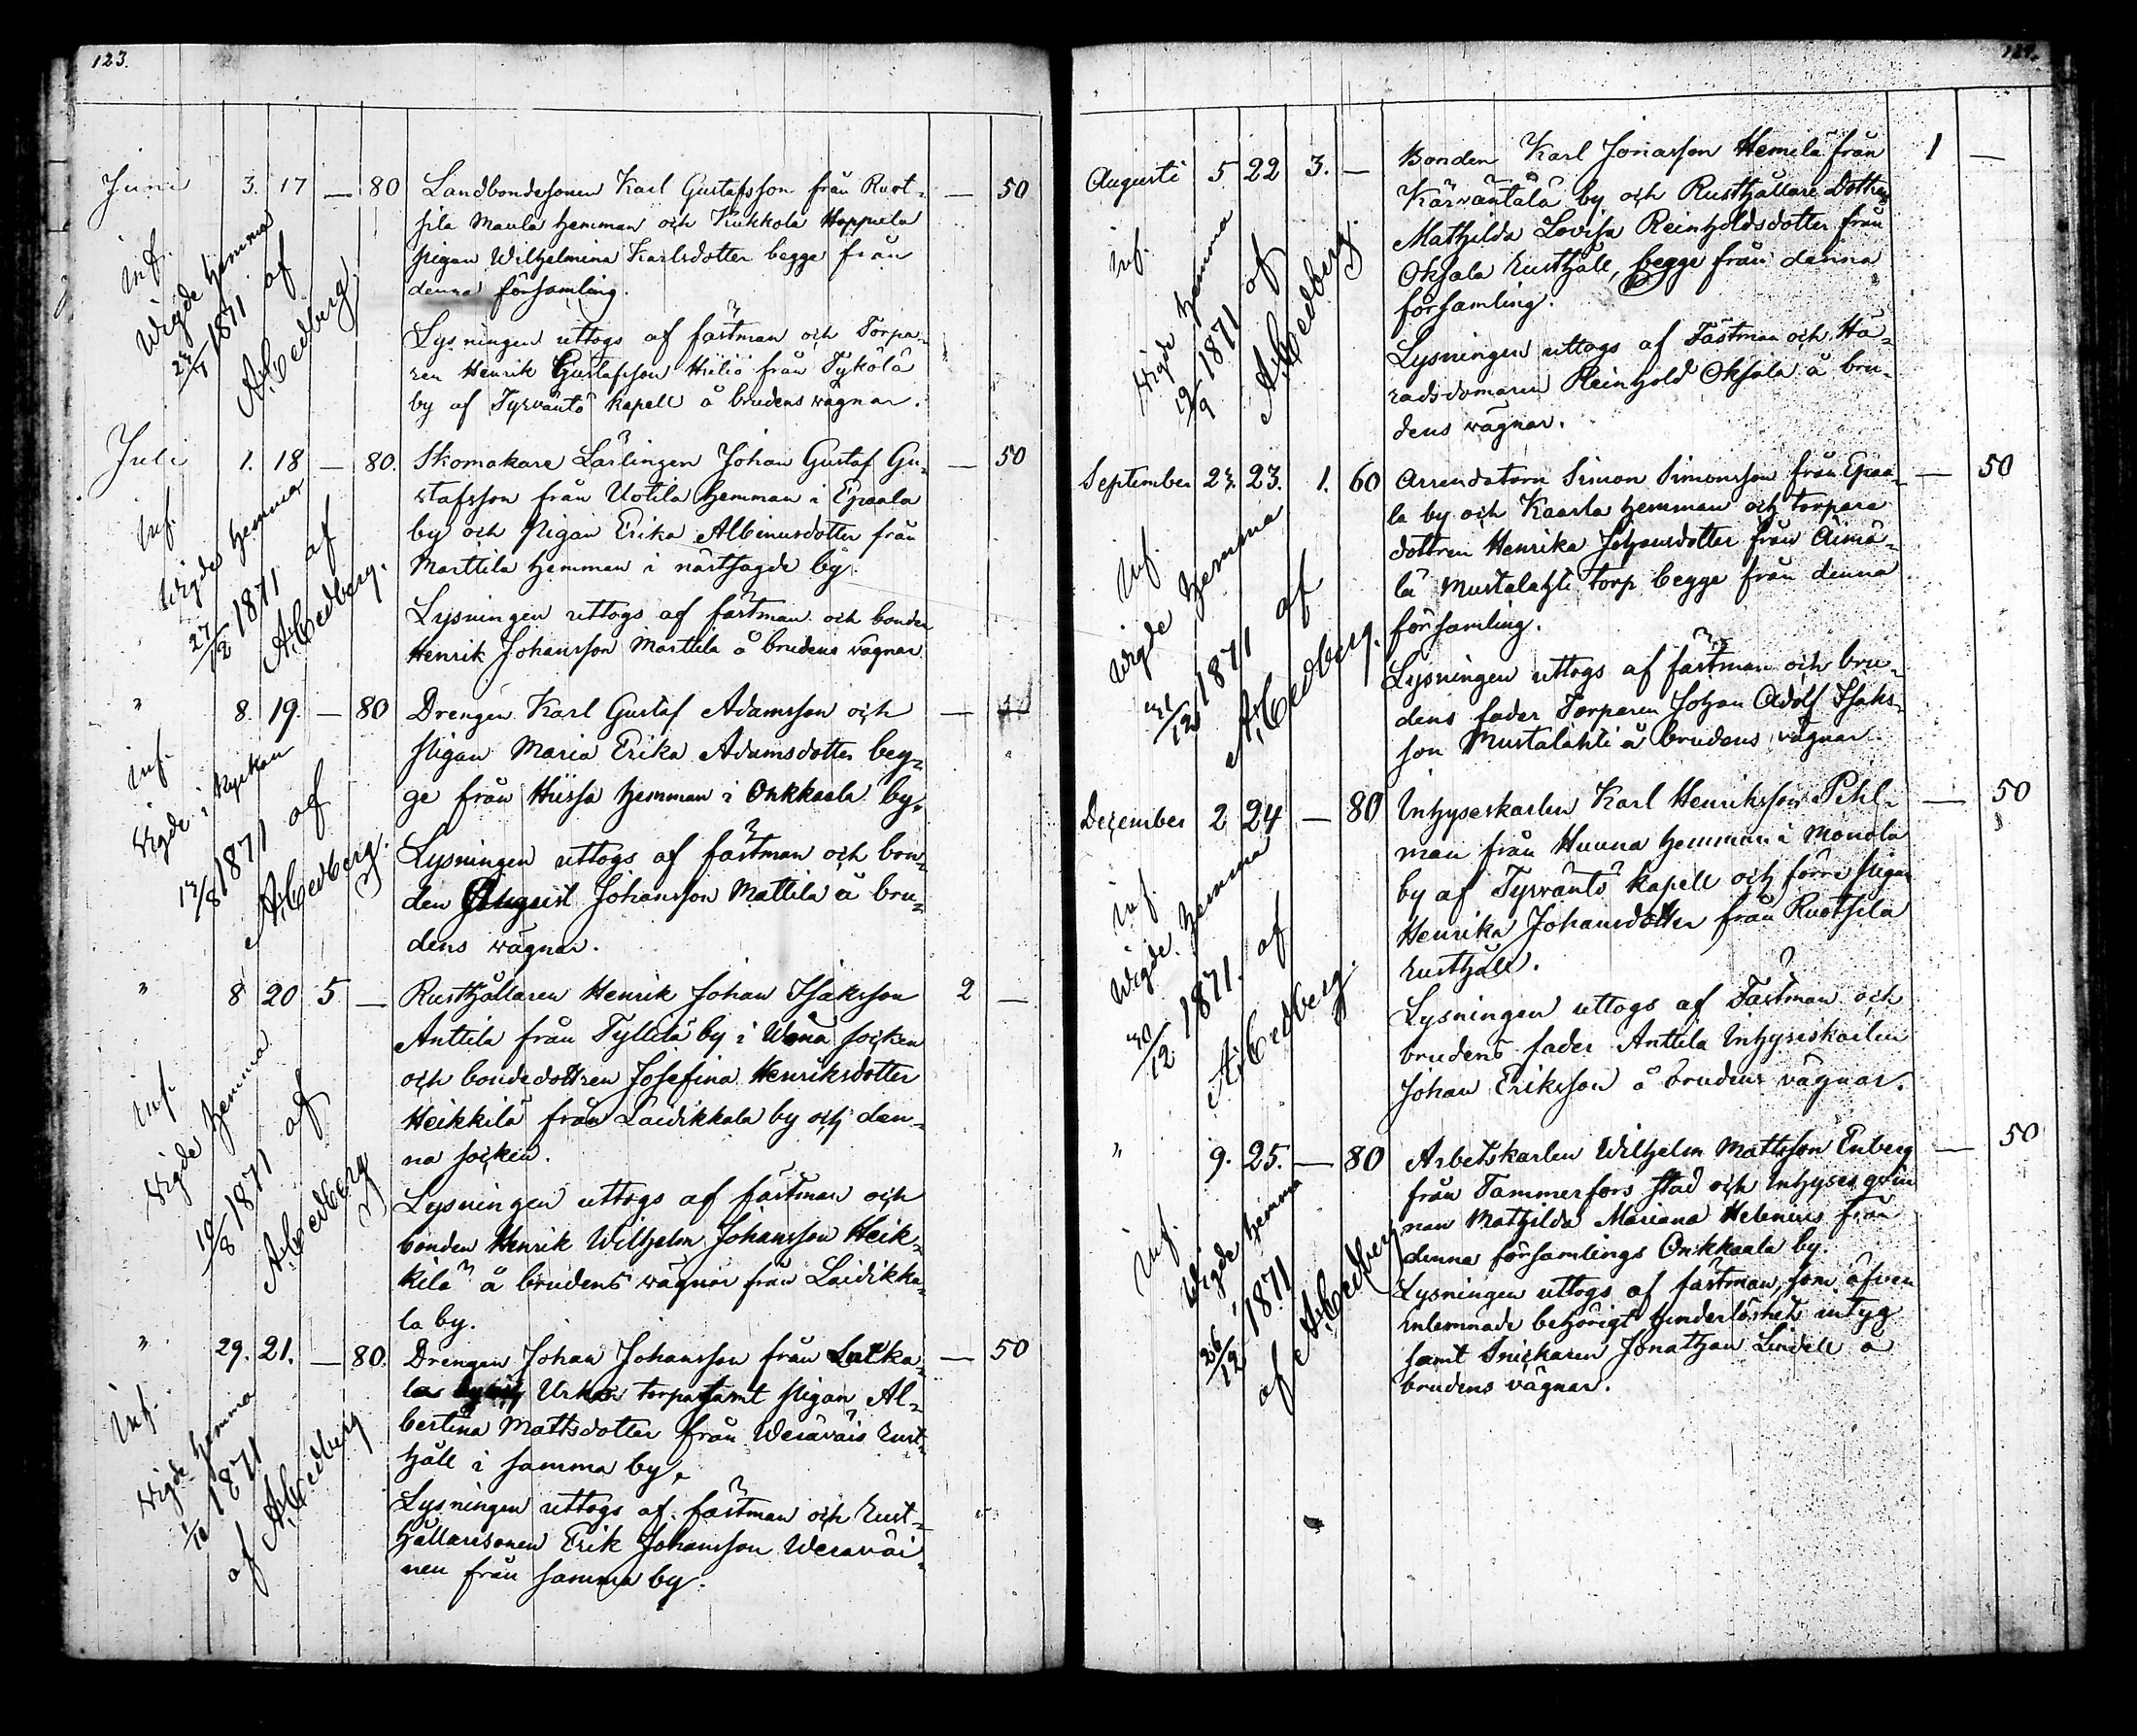 123.
Juni 3. 17 — 80 Landbondesonen Karl Gustafsson från Ruot- — 50
sila Maula hemman och Kukkola Hoppula
pigan Wilhelmina Karlsdotter begge från
denna församling.
Inf.
Wigde hemma
1871 af
A. Cedberg
Lysningen uttogs af fästman och Torpa-
ren Henrik Gustafsson Hiiliö från Tykölä
by af Tyrväntö kapell å brudens wägnar.
Juli 1. 18 — 80. Skomakare Lärlingen Johan Gustaf Gu- — 50
stafsson från Uotila hemman i Epaala
by och pigan Erika Albinusdotter från
Marttila hemman i nästsagde by.
Inf.
Wigde hemma
27/12 1871 af
A. Cedberg.
Lysningen uttogs af fästman och bonden
Henrik Johansson Marttila å brudens vägnar
" 8. 19. — 80 Drengen Karl Gustaf Adamsson och —
pigan Maria Erika Adamsdotter beg-
ge från Hiissa hemman i Onkkaala by.
Inf.
Wigde i Kyrkan
13/8 1871 af
A. Cedberg.
Lysningen uttogs af fästman och bon-
den August Johansson Mattila å bru-
dens wägnar.
" 8 20 5 — Rusthållaren Henrik Johan Isaksson 2 —
Anttila från Tyllilä by i Wånå socken
och bondedottren Josefina Henriksdotter
Heikkilä från Laidikkala by och den-
na socken.
Inf.
Wigde hemma
19/8 1871 af
A. Cedberg
Lysningen uttogs af fästman och
bonden Henrik Wilhelm Johansson Heik-
kilä å brudens wägnar från Laidikka-
la by.
" 29. 21. — 80. Drengen Johan Johansson från Luika- — 50
la Urkon torp samt pigan Al-
bertina Mattsdotter från Weravais rust-
håll i samma by.
Inf.
Wigde hemma
1/10 1871
af A. Cedberg
Lysningen uttogs af fästman och Rust-
hållaresonen Erik Johansson Weravai-
nen från samma by.
124.
Augusti 5 22 3. — Bonden Karl Jonasson Hemelä från 1 —
Kärväntälä by och Rusthållare dottren
Mathilda Lovisa Reinholdsdotter från
Oksala Rusthåll, begge från denna
församling.
Inf.
Wigde hemma
19/9 1871 af
A. Cedberg.
Lysningen uttogs af Fästman och Hä-
radsdomaren Reinhold Oksala å bru-
dens vägnar.
September 23. 23. 1. 60 Arrendatorn Simon Simonsson från Epaa- — 50
la by och Kaarla hemman och torpare
dottren Henrika Johansdotter från Äimä-
lä Mustalahti torp begge från denna
församling.
Inf.
Wigde hemma
31/12 1871 af
A. Cedberg.
Lysningen uttogs af fästman och bru-
dens fader Torparen Johan Adolf Isaks-
son Mustalahti å brudens vägnar.
December 2 24 — 80 Inhyseskarlen Karl Henriksson Pihl- — 50
man från Hunna hemman i Monola
by af Tyrväntö kapell och förre pigan
Henrika Johansdotter från Ruotsila
Rusthåll.
Inf.
Wigde hemma
30/12 1871. af
A. Cedberg.
Lysningen uttogs af Fästman och
brudens fader Anttila Inhyseskarlen
Johan Eriksson å brudens vägnar.
" 9. 25. — 80 Arbetskarlen Wilhelm Mattsson Enberg — 50
från Tammerfors stad och Inhyses qvin-
nan Mathilda Mariana Helenius från
denna församlings Onkkaala by.
Inf.
Wigde hemma
26/12 1871
af A. Cedberg
Lysningen uttogs af fästman, som äfven
inlemnade behörigt hinderlöshets intyg
samt Snickaren Jonathan Lindell å
brudens vägnar.